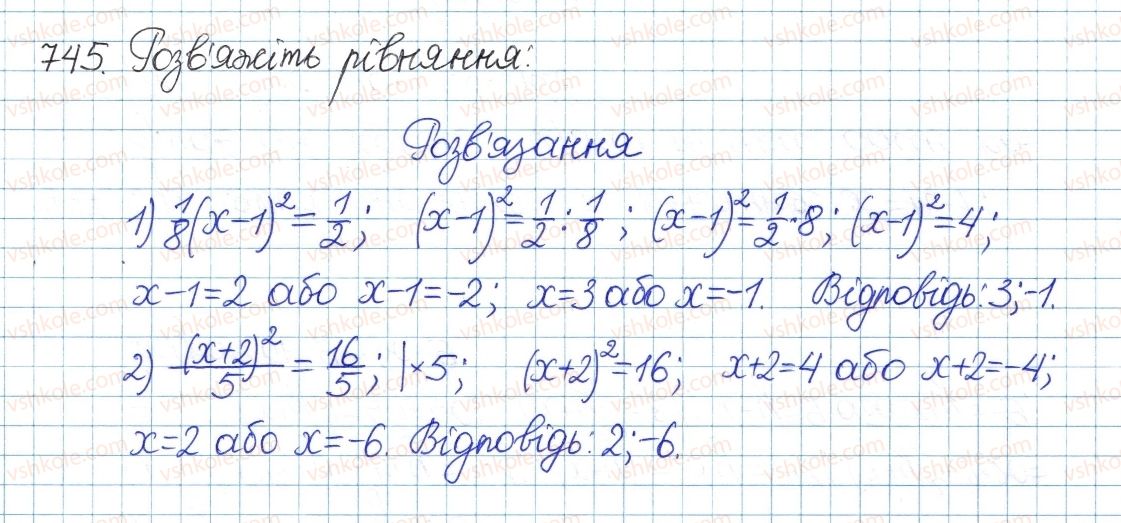 745. Розв'яжіть рівняння:
Розв'язання
1) 1/8(x-1)²=1/2; (x-1)²=1/2:1/8; (x-1)²=1/2·8; (x-1)²=4;
x-1=2 або x-1=-2; x=3 або x=-1. Відповідь: 3;-1.
2) (x+2)²/5=16/5; |×5; (x+2)²=16; x+2=4 або x+2=-4;
x=2 або x=-6. Відповідь: 2;-6.